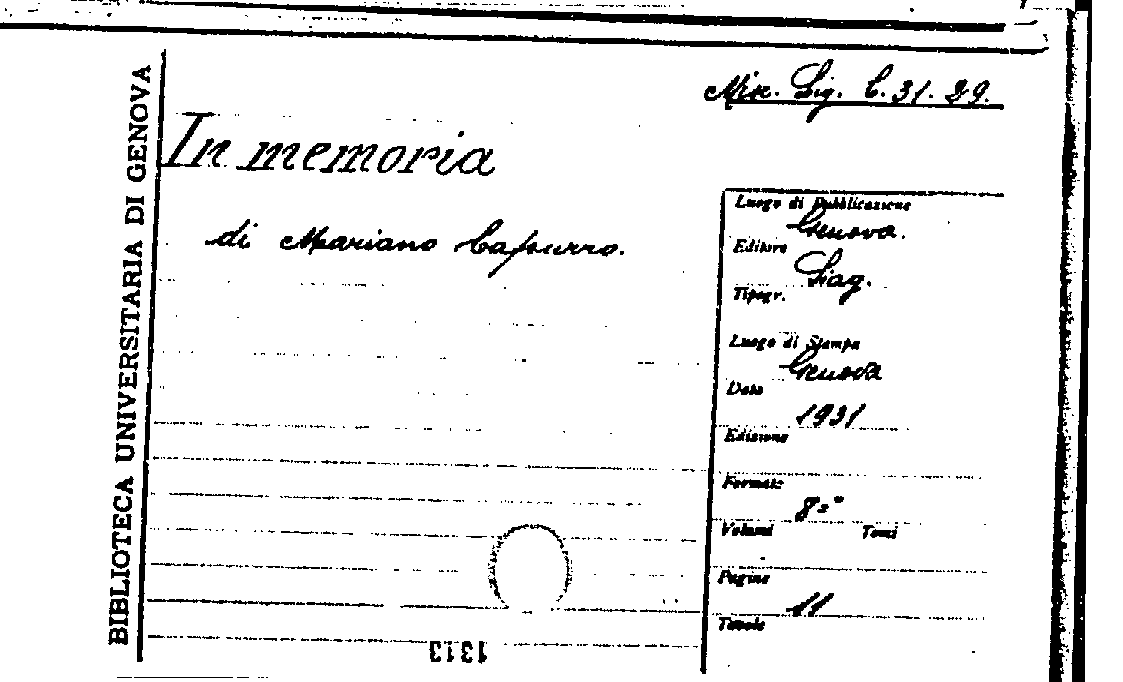 BIBLIOTECA UNIVERSITARIA DI GENOVA
Misc. Lig. C. 31. 29.
In memoria
di Mariano Capurro.
Luogo di Pubblicazione
Genova.
Editore
Siag.
Tipogr.
Luogo di Stampa
Genova
Data
1931
Edizione
Formato
8°
Volumi Tomi
Pagine
11
Tavole
1313